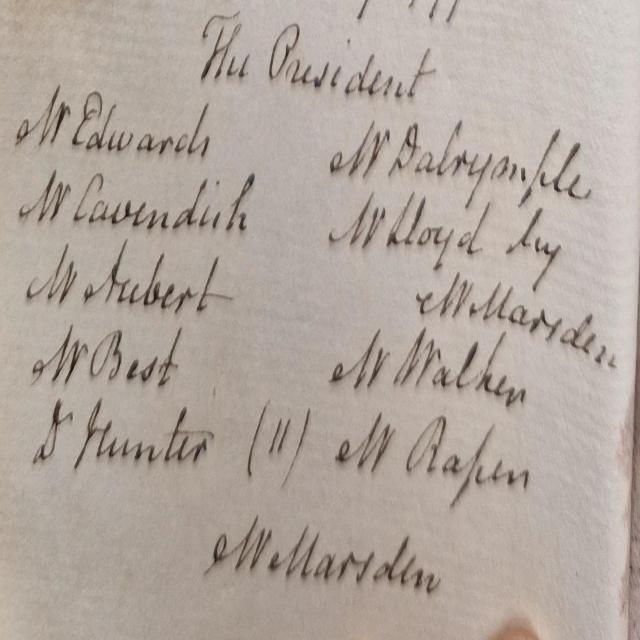 The President
Mr Edwards Mr Dalrymple
Mr Cavendish Mr Lloyd
Mr Aubert Mr Marsden
Mr Best Mr Walker
Dr Hunter (11) Mr Raper
Mr Marsden